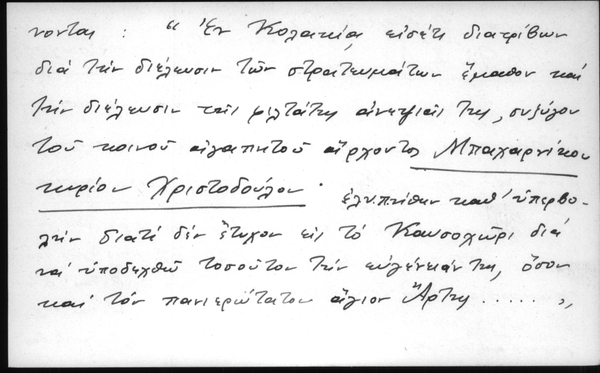 νονται : " Ἐν Κολακίᾳ εἰσέτι διατρίβων
διά τήν διέλευσιν τῶν στρατευμάτων ἔμαθον καί
τήν διέλευσιν τῆς φιλτάτης ἀνεψιᾶς της, συζύγου
τοῦ κοινοῦ ἀγαπητοῦ ἄρχοντος Μπαχαρνίκου
κυρίου Χριστοδούλου · ἐλυπήθην καθ' ὑπερβο-
λήν διατί δέν ἔτυχον εἰς τό Καυσοχῶρι διά
νά ὑποδεχθῶ τοσοῦτον τήν εὐγένειάν της, ὅσον
καί τόν πανιερώτατον ἅγιον Ἄρτης ..... "